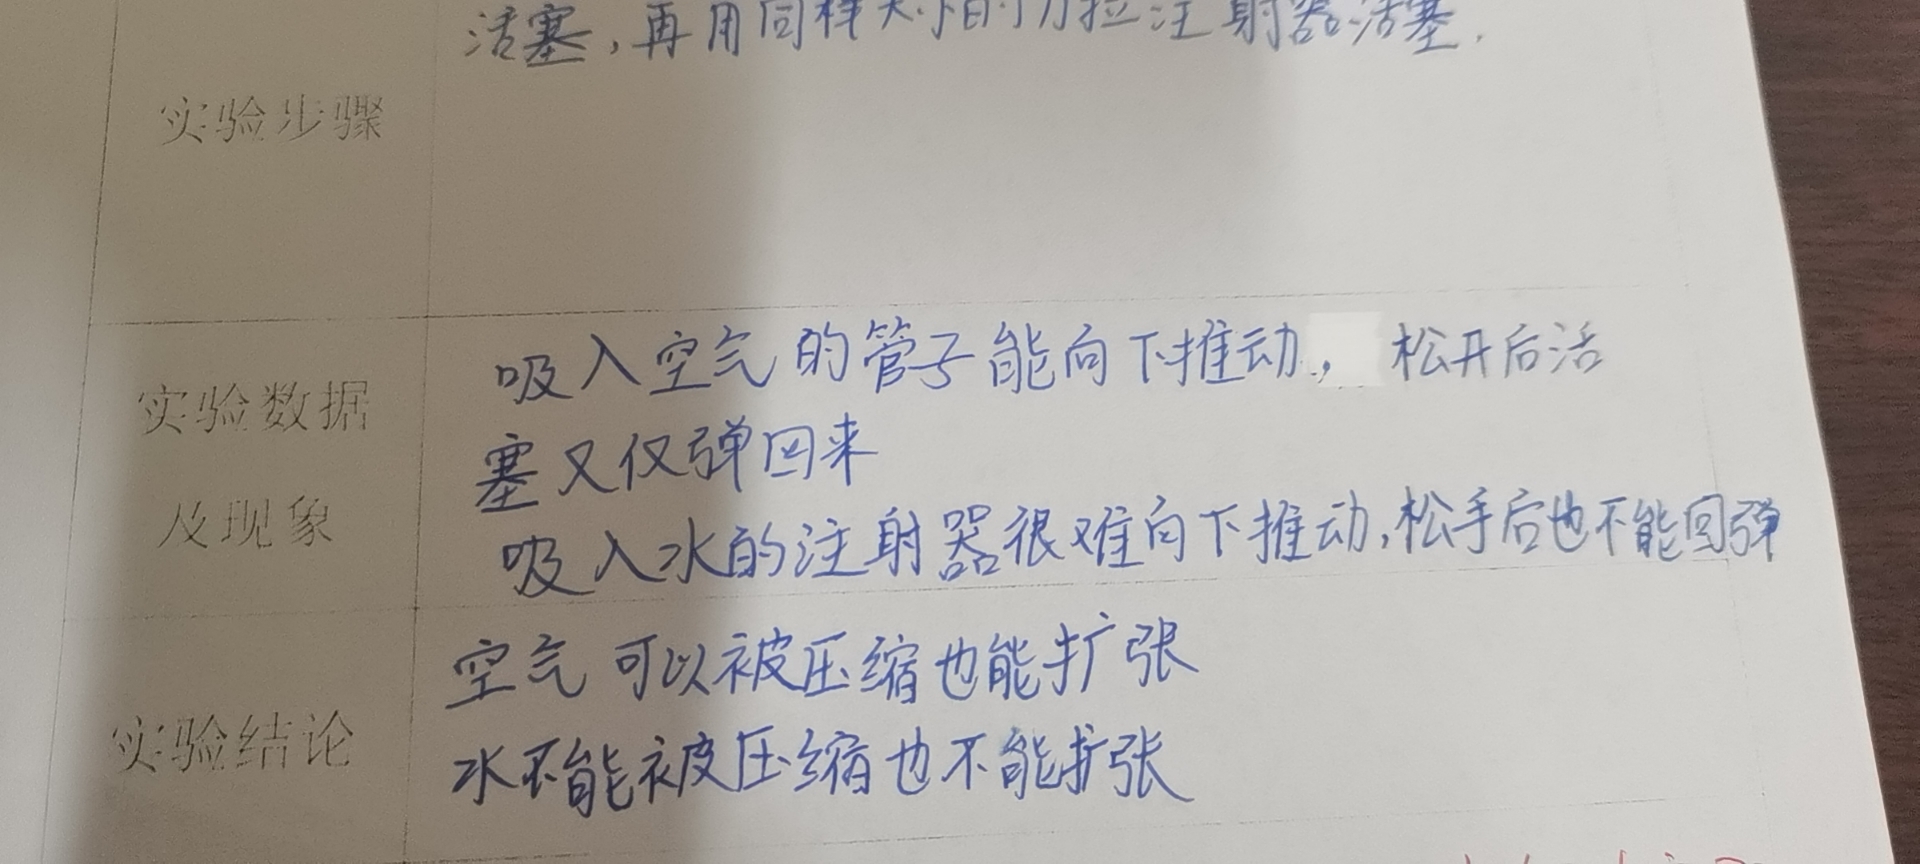 活塞，再用同样大小的力拉注射器活塞．
实验步骤
吸入空气的管子能向下推动，松开后活
塞又仅弹回来
实验数据
及现象
吸入水的注射器很难向下推动，松手后也不能回弹
空气可以被压缩也能扩张
水不能被压缩也不能扩张
实验结论